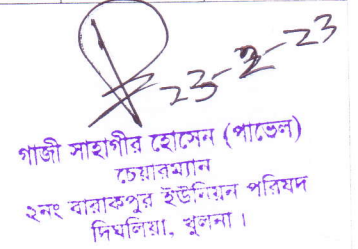 23-2-23
গাজী সাহাগীর হোসেন (পাভেল)
চেয়ারম্যান
২নং বারাকপুর ইউনিয়ন পরিষদ
দিঘলিয়া, খুলনা।